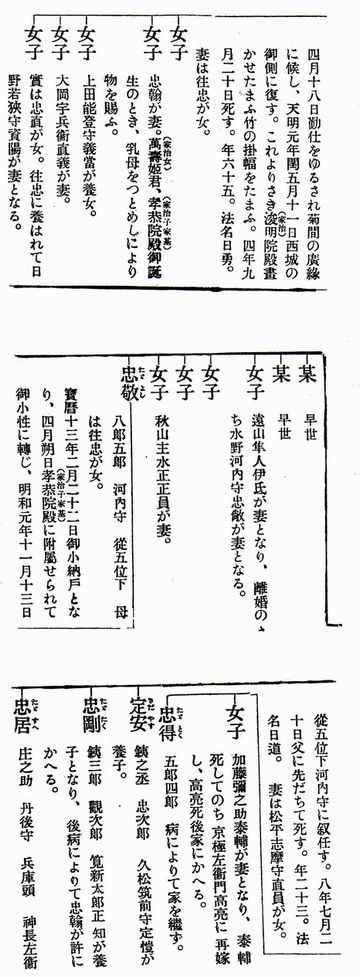 四月十八日勤仕をゆるされ菊間の廣緣
に候し、天明元年閏五月十一日西城の
御側に復す。これよりさき浚明院殿畫
(家治)
かせたまふ竹の掛幅をたまふ。四年九
月二十日死す。年六十五。法名日勇。
妻は往忠が女。
女子
女子
忠翰が妻。萬壽姬君、孝恭院殿御誕
(家治女)
(家治子家基)
生のとき、乳母をつとめしにより
物を賜ふ。
女子
上田能登守義當が養女。
女子
大岡宇兵衞直義が妻。
女子
實は忠直が女。往忠に養はれて日
野若狹守資陽が妻となる。
某
早世
某
早世
女子
遠山隼人伊氏が妻となり、離婚の
ち水野河内守忠敵が妻となる。
女子
女子
女子
秋山主水正正員が妻。
忠敬
たゞよし
八郎五郎 河内守 從五位下 母
は往忠が女。
寶曆十三年二月二十二日御小納戸とな
り、四月朔日孝恭院殿に附屬せられて
(家治子家基)
御小性に轉じ、明和元年十一月十三日
從五位下河内守に叙任す。八年七月二
十日父に先だちて死す。年二十三。法
名日道。 妻は松平志摩守直員が女。
女子
加藤彌之助泰輔が妻となり、泰輔
死してのち京極左衞門高亮に再嫁
し、高亮死後家にかへる。
忠得
五郎四郎 病によりて家を繼す。
定安
さだやす
銕之丞 忠次郎 久松筑前守定愷が
養子。
忠剛
銕三郎 觀次郎 筧新太郎正知が養
子となり、後病によりて忠翰が許に
かへる。
忠居
庄之助 丹後守 兵庫頭 神長左衞